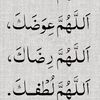 اَللّٰهُمَّ عِوَضَكَ،
اَللّٰهُمَّ رِضَاكَ،
اَللّٰهُمَّ لُطْفَكَ.